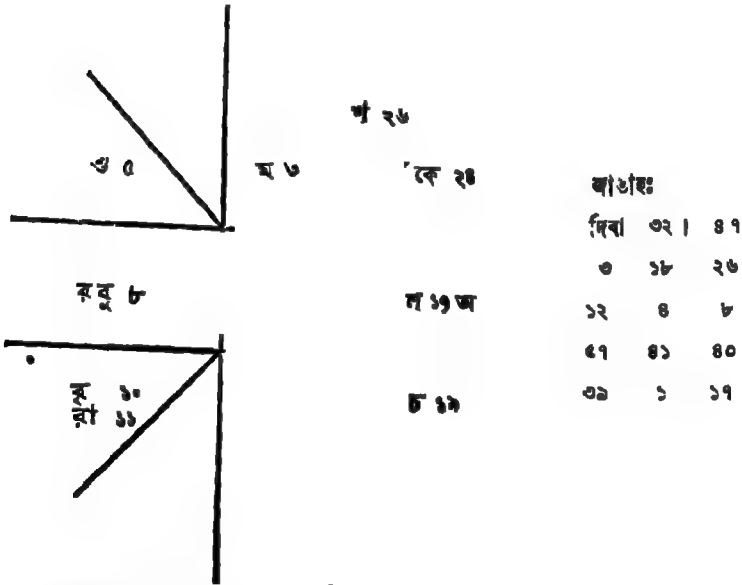 শ ২৬
শু ৫ ম ৬ কে ২৪
র বু ৮ ল ১৭ অ
১০
রা ১১
চ ১৯
জাতাহঃ
দিবা ৩২। ৪৭
৩ ১৮ ২৬
১২ ৪ ৮
৫৭ ৪১ ৪০
৩৯ ১ ১৭